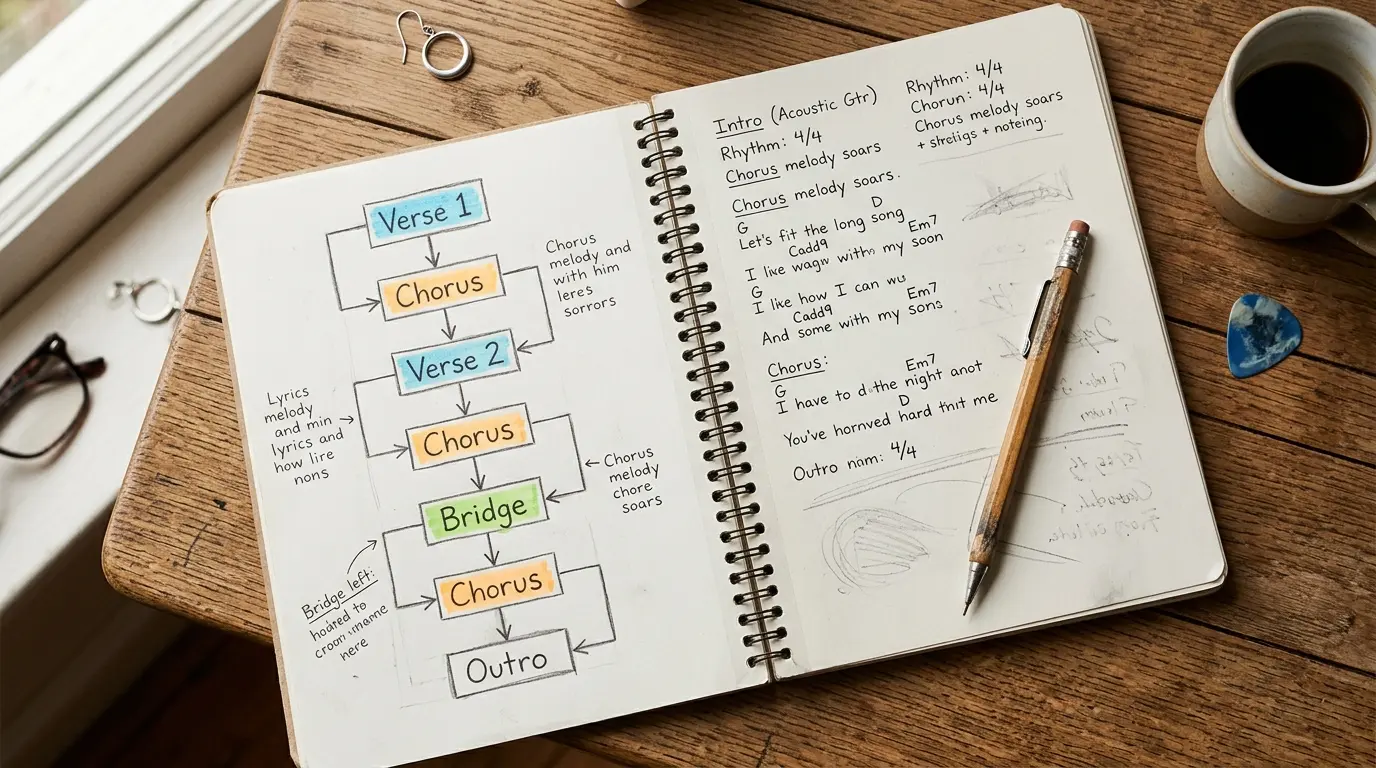 Verse 1
Chorus
Verse 2
Chorus
Bridge
Chorus
Outro
Chorus
melody and
with him
leres
sorrors
Lyrics
melody
and min
lyrics and
how lire
nons
Chorus
melody
chore
soars
Bridge left:
to
here
Intro (Acoustic Gtr)
Rhythm: 4/4
Chorus melody soars
Chorus melody soars.
G D
Let's fit the long song
Cadd9 Em7
I like wagn with my soon
G
I like how I can wu
Cadd9 Em7
And some with my sons
Chorus:
G Em7
I have to d the night anot
D
You've hornved hard me
Outro 4/4
Rhythm: 4/4
Chorun: 4/4
Chorus melody soars
+ + noteing.